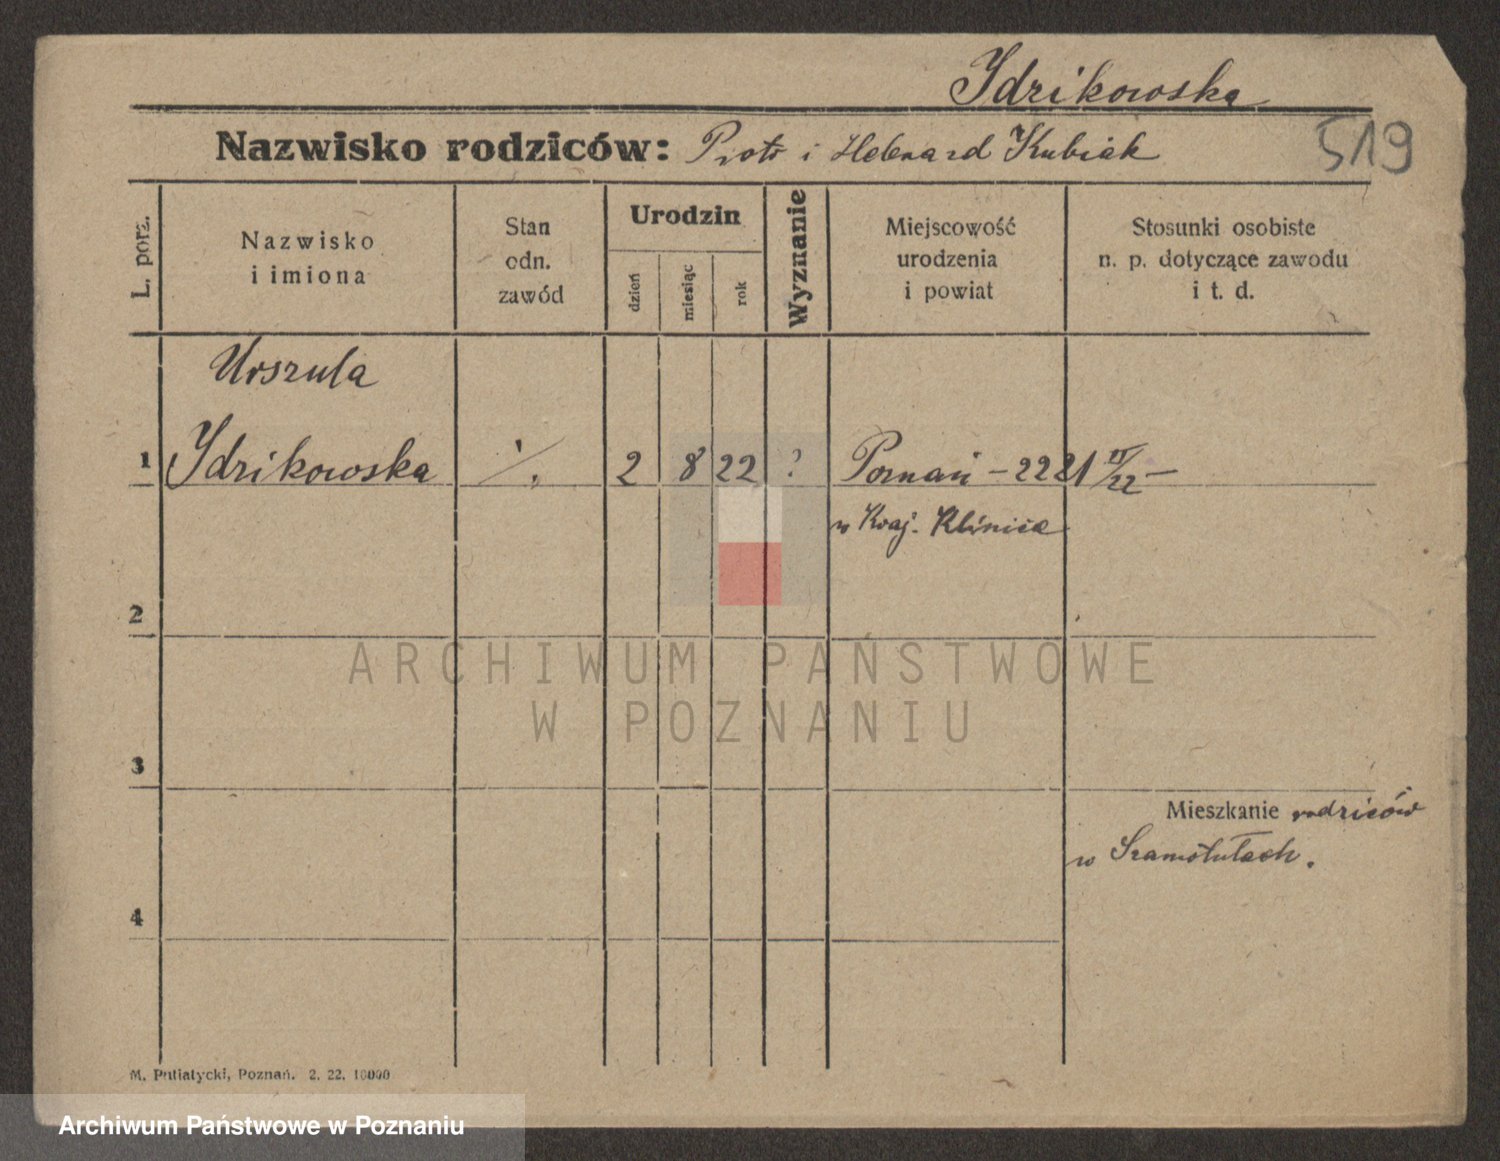 Idrikowska
Nazwisko rodziców: Piotr i Helena zd Kubiak
519
L. porz.
Nazwisko
i imiona
Stan
odn.
zawód
Urodzin
dzień
miesiąc
rok
Wyznanie
Miejscowość
urodzenia
i powiat
Stosunki osobiste
n. p. dotyczące zawodu
i t. d.
Urszula
1 Idrikowska 2 8 22 ? Poznań – 2221 /22 –
w Kraj. Klinice
2
ARCHIWUM PAŃSTWOWE
W POZNANIU
3
Mieszkanie rodziców
w Szamotułach.
4
M. Putiatycki, Poznań. 2. 22. 10000
Archiwum Państwowe w Poznaniu